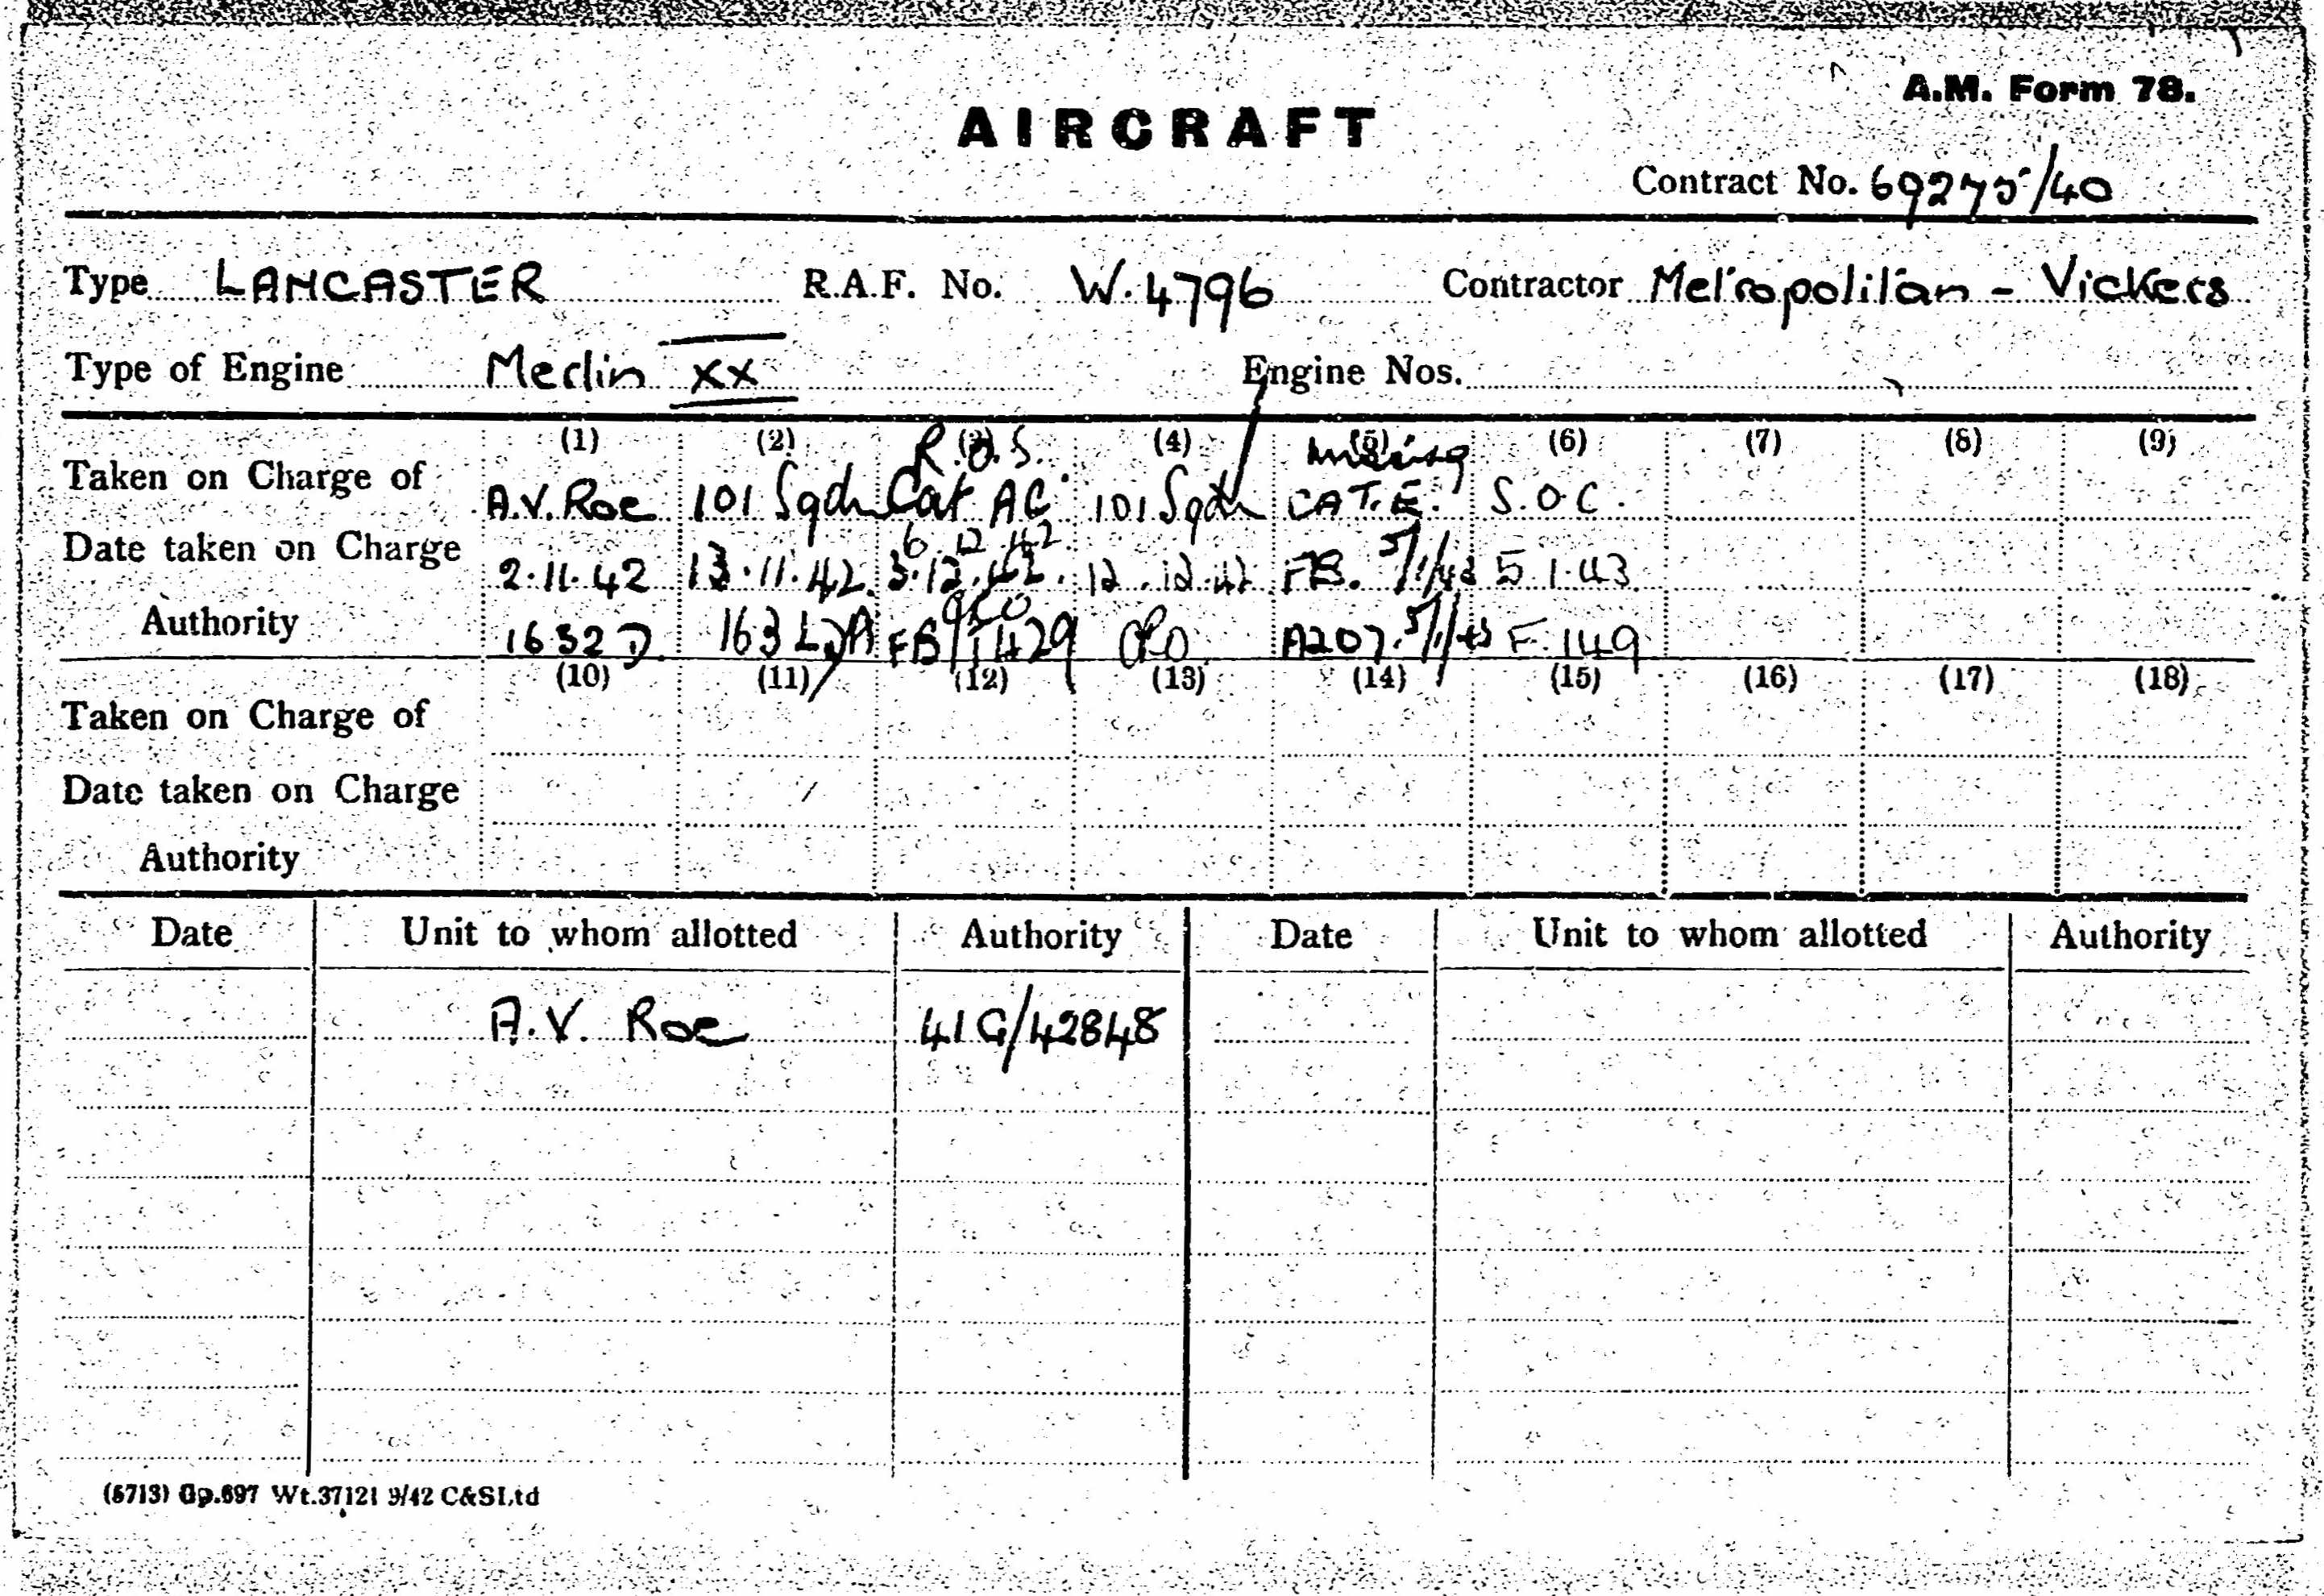 A.M. Form 78.
AIRCRAFT
Contract No. 69275/40
Type LANCASTER R.A.F. No. W.4796 Contractor Metropolitan - Vickers
Type of Engine Merlin XX Engine Nos.
(1) (2) (3) (4) (5) (6) (7) (8) (9)
R.O.S. Missing
Taken on Charge of A.V. Roe 101 Sqdn Cat AC 101 Sqdn CAT.E. S.O.C.
6.12.42
Date taken on Charge 2.11.42 13.11.42. 3.12.42. 12.12.42 FB. 5/1/43 5.1.43
Authority 1632 D. 163 LDA FB/T429 A207. 5/1/43 F.149
(10) (11) (12) (13) (14) (15) (16) (17) (18)
Taken on Charge of
Date taken on Charge
Authority
Date Unit to whom allotted Authority Date Unit to whom allotted Authority
A.V. Roe 41G/42848
(5713) Gp.697 Wt.37121 9/42 C&SLtd